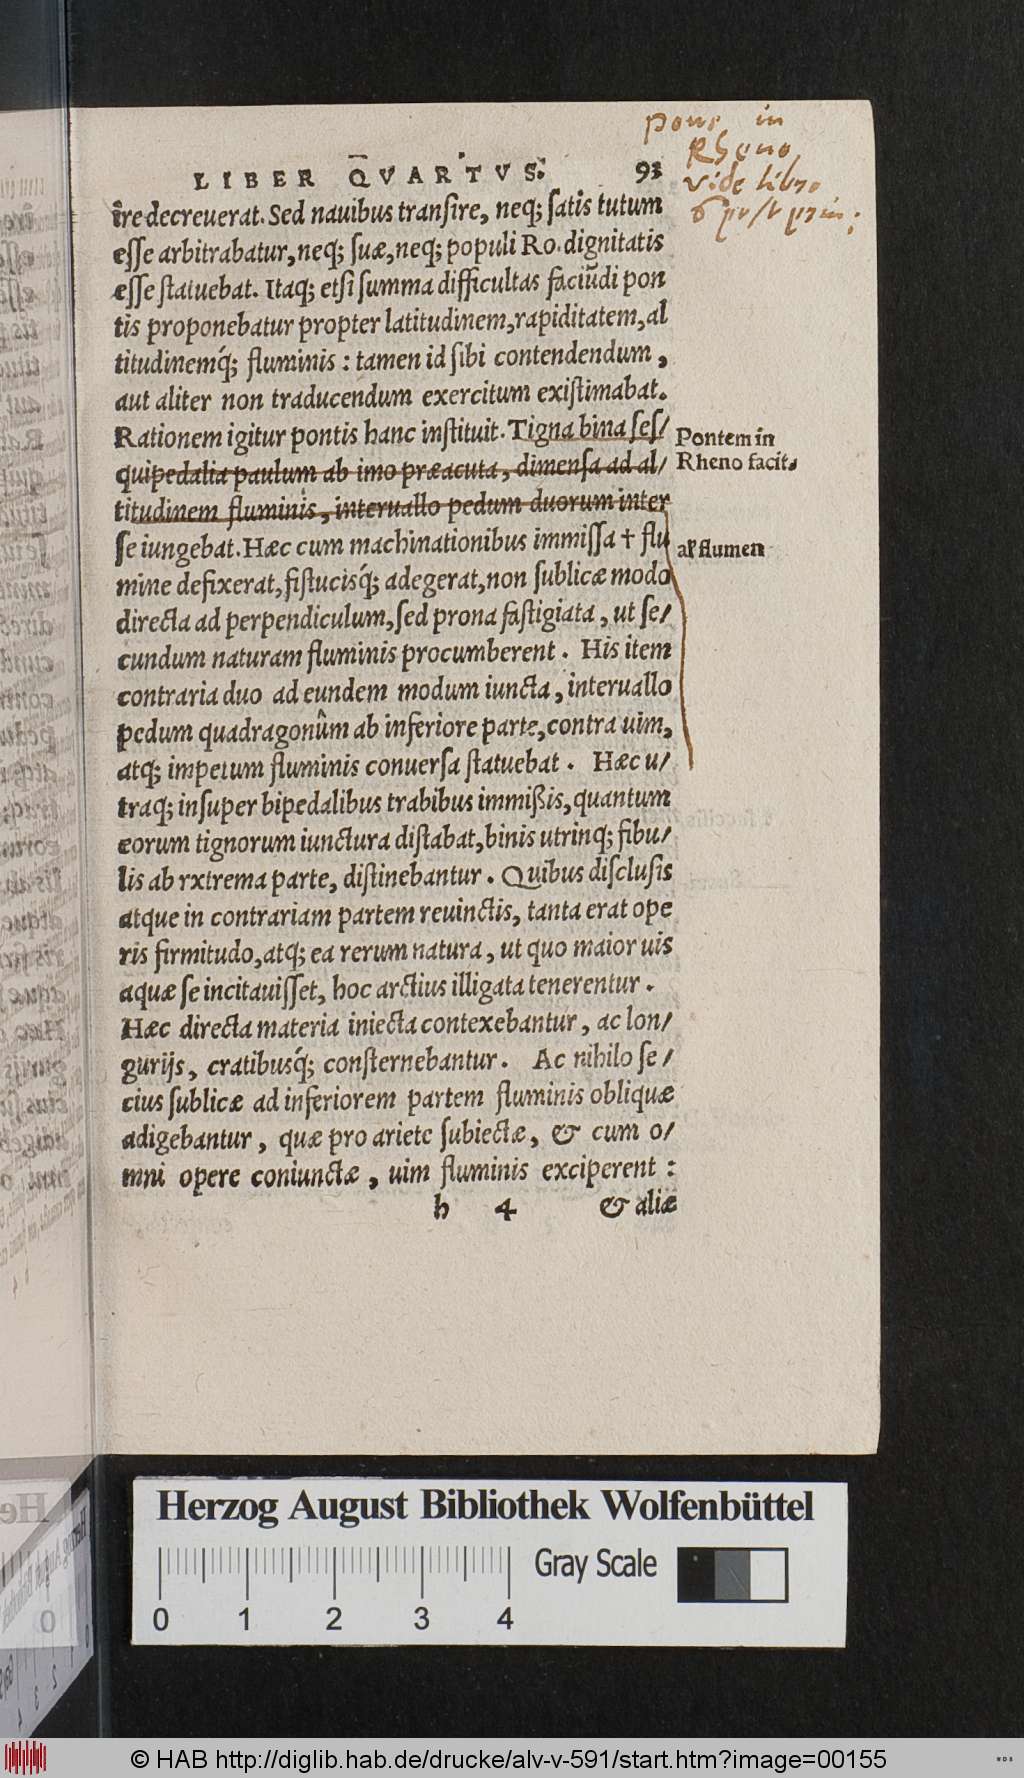 pons in
Rheno
vide libro
6
LIBER QVARTVS. 93
ire decreuerat. Sed nauibus transire, neq; satis tutum
esse arbitrabatur, neq; suæ, neq; populi Ro. dignitatis
esse statuebat. Itaq; etsi summa difficultas faciūdi pon
tis proponebatur propter latitudinem, rapiditatem, al
titudinemq́; fluminis : tamen id sibi contendendum,
aut aliter non traducendum exercitum existimabat.
Rationem igitur pontis hanc instituit. Tigna bina ses/
quipedalia paulum ab imo præacuta, dimensa ad al/
titudinem fluminis, interuallo pedum duorum inter
se iungebat. Hæc cum machinationibus immissa † flu
mine defixerat, fistucisq́; adegerat, non sublicæ modo
directa ad perpendiculum, sed prona fastigiata, ut se/
cundum naturam fluminis procumberent. His item
contraria duo ad eundem modum iuncta, interuallo
pedum quadragonûm ab inferiore parte, contra uim,
atq; impetum fluminis conuersa statuebat. Hæc u/
traq; insuper bipedalibus trabibus immißis, quantum
eorum tignorum iunctura distabat, binis utrinq; fibu/
lis ab rxtrema parte, distinebantur. Quibus disclusis
atque in contrariam partem reuinctis, tanta erat ope
ris firmitudo, atq; ea rerum natura, ut quo maior uis
aquæ se incitauisset, hoc arctius illigata tenerentur.
Hæc directa materia iniecta contexebantur, ac lon/
gurijs, cratibusq́; consternebantur. Ac nihilo se/
cius sublicæ ad inferiorem partem fluminis obliquæ
adigebantur, quæ pro ariete subiectæ, & cum o/
mni opere coniunctæ, uim fluminis exciperent :
h 4 & aliæ
Pontem in
Rheno facit.
al' flumen
Herzog August Bibliothek Wolfenbüttel
Gray Scale
0 1 2 3 4
© HAB http://diglib.hab.de/drucke/alv-v-591/start.htm?image=00155